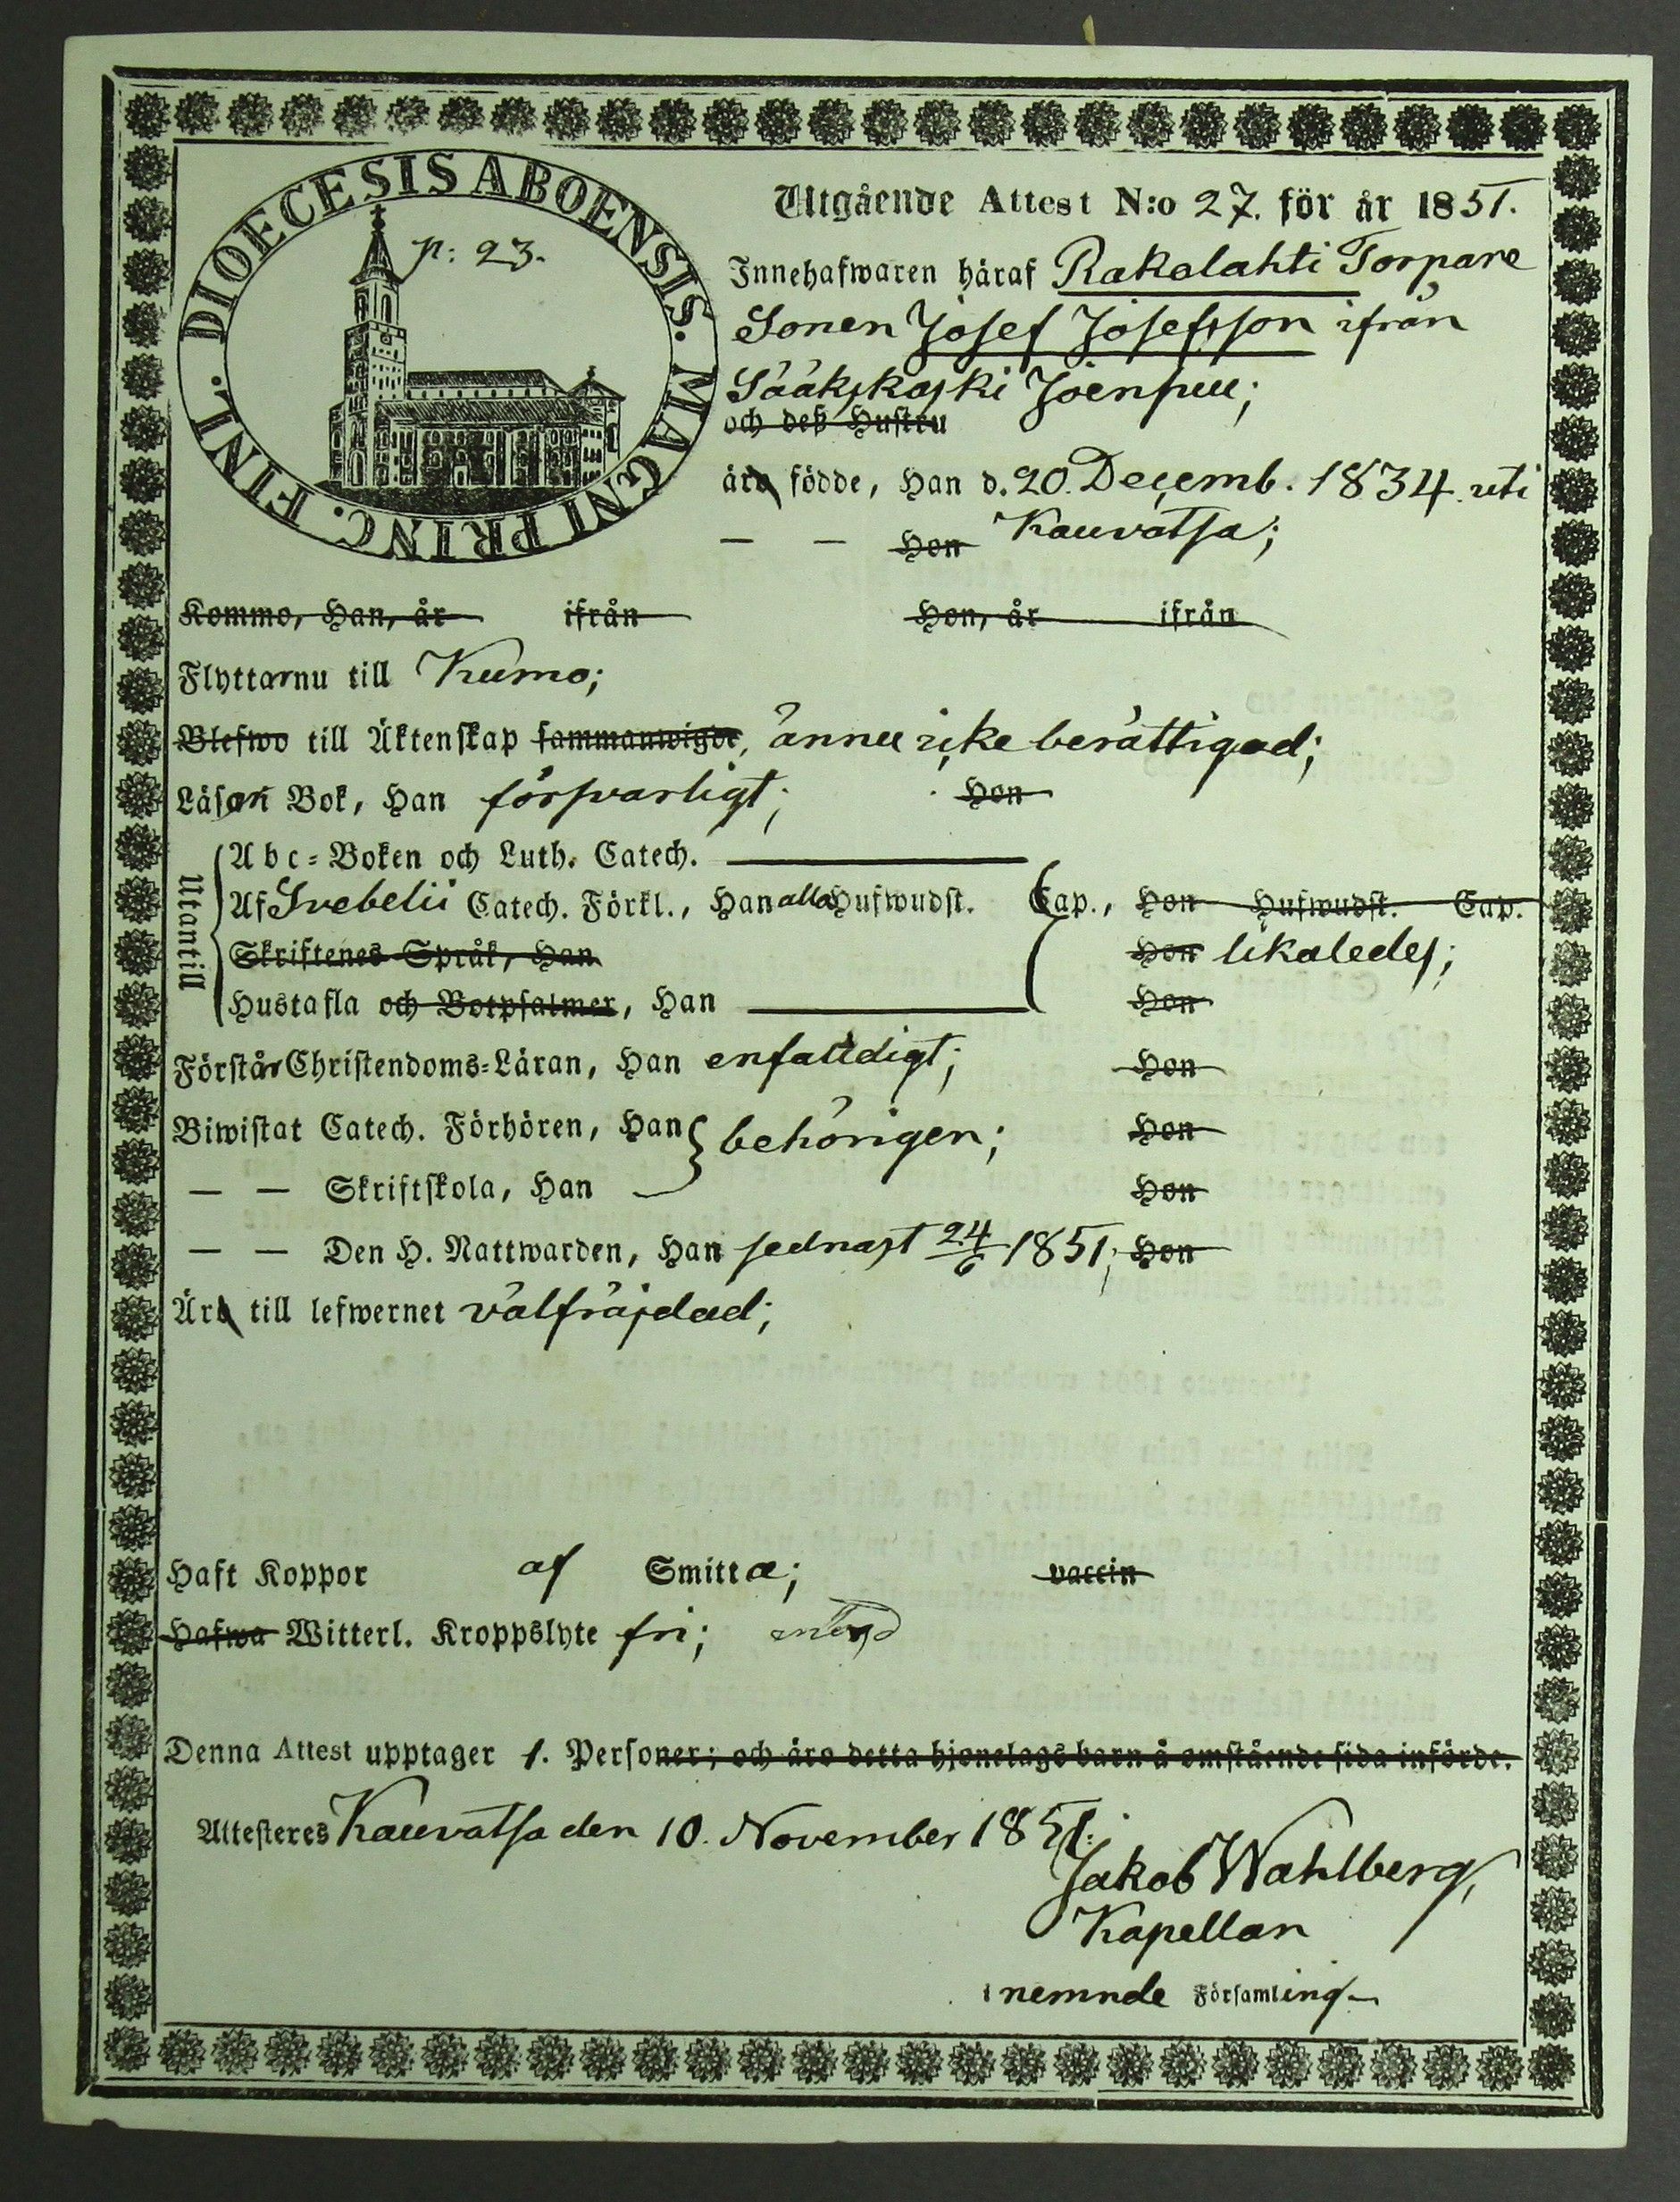 DIOECESIS ABOENSIS. MAGNI PRINC. FINL.
p: 23.
Utgående Attest N:o 27. för år 1851.
Innehafwaren häraf Rakalahti Torpare
Sonen Josef Josefsson ifrån
Sääkskoski Joenpuu;
och deß Hustru
äro födde, Han d. 20. Decemb. 1834. uti
— — Hon Kauvatsa;
Kommo, Han, år ifrån Hon, år ifrån
Flyttar nu till Kumo;
Blefwo till Äktenskap sammanwigde, ännu icke berättigad;
Läser i Bok, Han försvarligt; Hon
Utantill
Abc-Boken och Luth. Catech.
Af Svebelii Catech. Förkl., Han alla Hufwudst. Cap., Hon Hufwudst. Cap.
Skriftenes Språk, Han Hon likaledes;
Hustafla och Botpsalmer, Han Hon
Förstår Christendoms-Läran, Han enfaldigt; Hon
Biwistat Catech. Förhören, Han behörigen; Hon
— — Skriftskola, Han Hon
— — Den H. Nattwarden, Han sednast 24/6 1851; Hon
Äro till lefwernet välfräjdad;
Haft Koppor af Smitta; vaccin
Hafwa Witterl. Kroppslyte fri;
Denna Attest upptager 1. Personer; och äro detta hjonelags barn å omstående sida införde.
Attesteres Kauvatsa den 10. November 1851.
Jakob Wahlberg,
Kapellan
i nemnde Församling